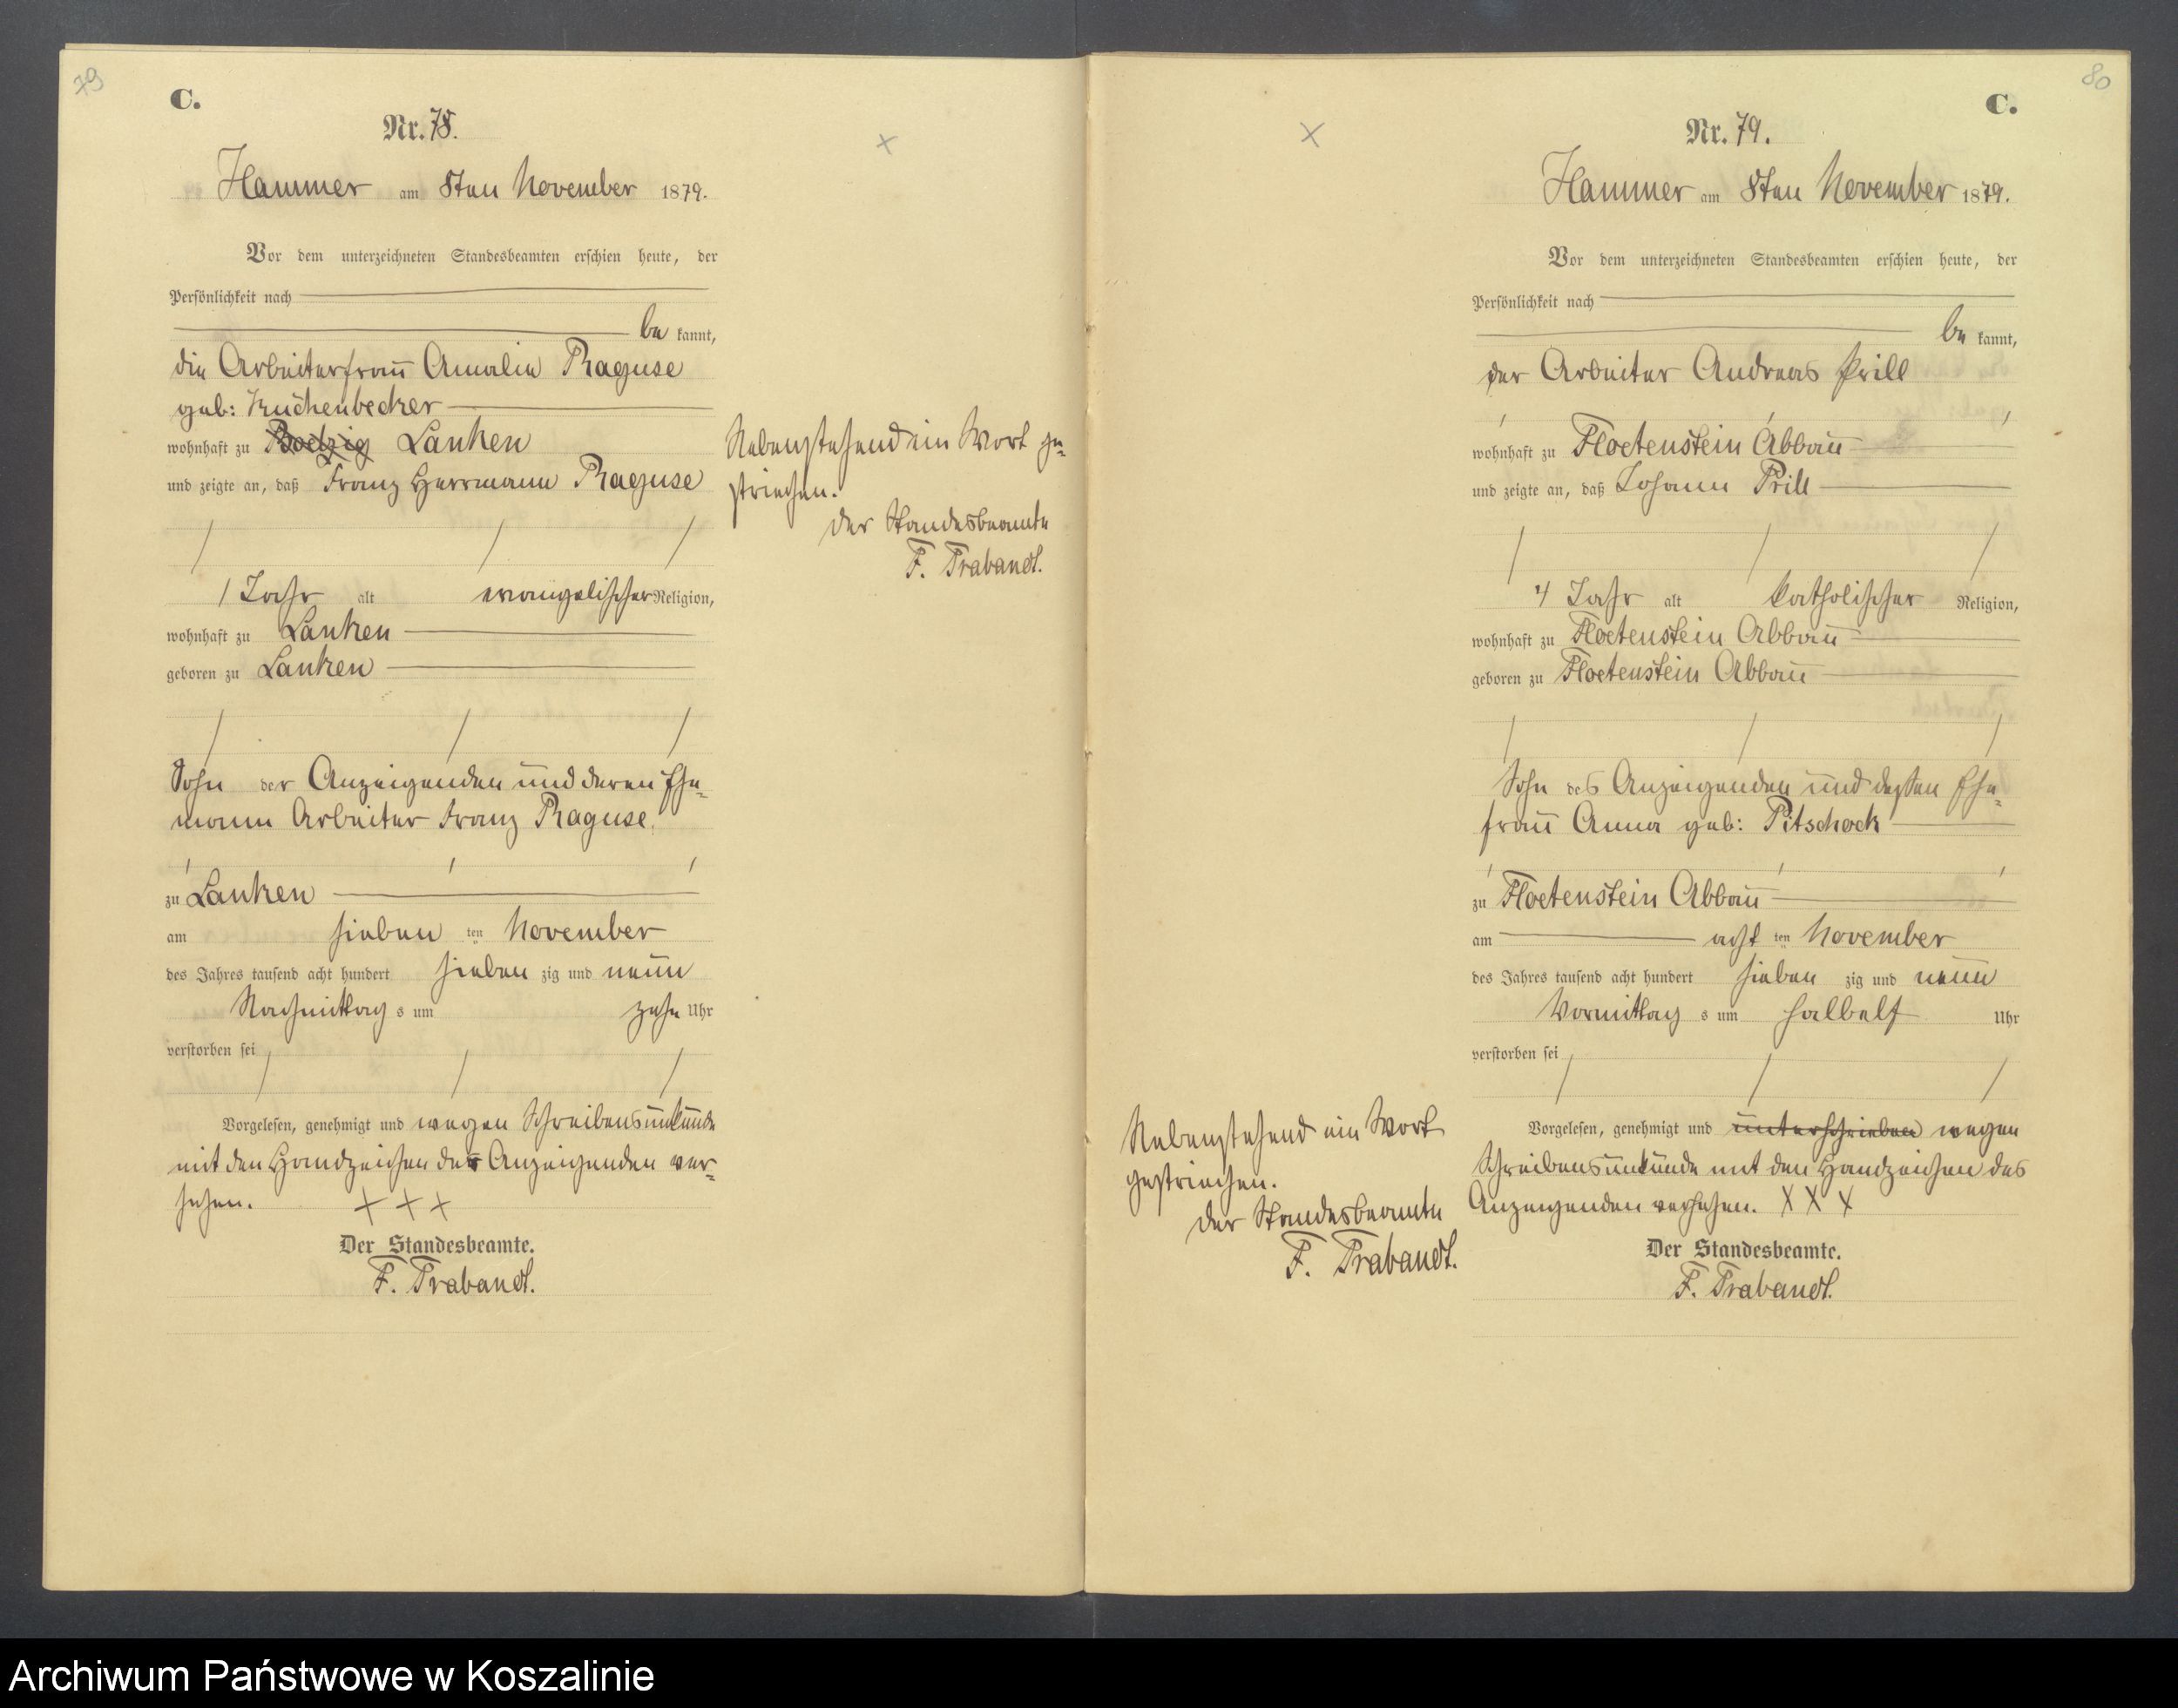 79
C.
Nr. 78.
Hammer am 8ten November 1879.
Vor dem unterzeichneten Standesbeamten erschien heute, der
Persönlichkeit nach
be kannt,
die Arbeiterfrau Amalie Raguse
geb: Kuchenbecker
wohnhaft zu Lanken
und zeigte an, daß Franz Herrmann Raguse
1 Jahr alt evangelischer Religion,
wohnhaft zu Lanken
geboren zu Lanken
Sohn der Anzeigenden und deren Ehe-
mann Arbeiter Franz Raguse.
zu Lanken
am sieben ten November
des Jahres tausend acht hundert sieben zig und neun
Nachmittag s um zehn Uhr
verstorben sei
Vorgelesen, genehmigt und wegen Schreibensunkunde
mit den Handzeichen der Anzeigenden ver-
sehen. + + +
Der Standesbeamte.
F. Trabandt.
Nebenstehend ein Wort ge-
strichen.
Der Standesbeamte
F. Trabandt.
80
C.
Nr. 79.
Hammer am 8ten November 1879.
Vor dem unterzeichneten Standesbeamten erschien heute, der
Persönlichkeit nach
be kannt,
der Arbeiter Andreas Prill
wohnhaft zu Floetenstein Abbau
und zeigte an, daß Johann Prill
4 Jahr alt katholischer Religion,
wohnhaft zu Floetenstein Abbau
geboren zu Floetenstein Abbau
Sohn des Anzeigenden und dessen Ehe-
frau Anna geb: Pitschock
zu Floetenstein Abbau
am acht ten November
des Jahres tausend acht hundert sieben zig und neun
Vormittag s um halbelf Uhr
verstorben sei
Vorgelesen, genehmigt und unterschrieben wegen
Schreibensunkunde mit den Handzeichen des
Anzeigenden versehen. X X X
Der Standesbeamte.
F. Trabandt.
Nebenstehend ein Wort
gestrichen.
Der Standesbeamte
F. Trabandt.
Archiwum Państwowe w Koszalinie